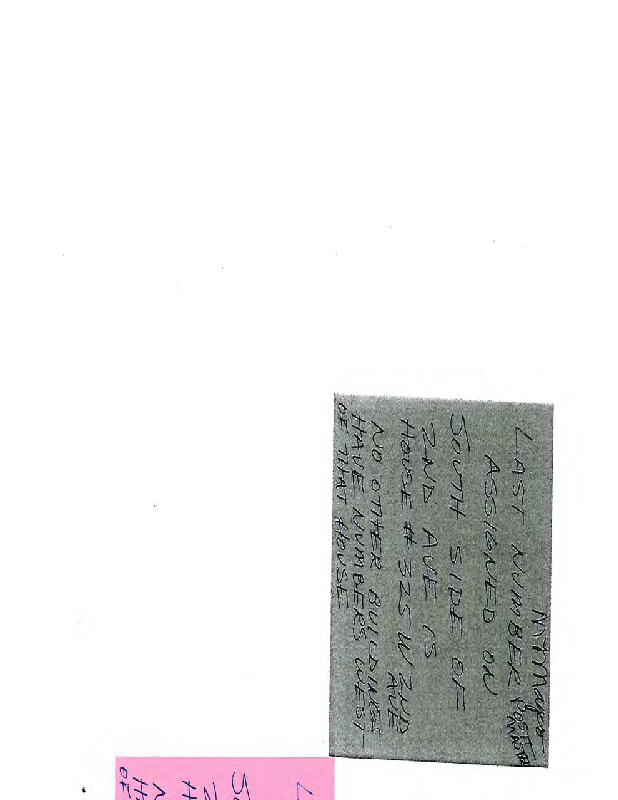 LAST NUMBER
ASSIGNED ON
SOUTH SIDE OF
2ND AVE IS
HOUSE # 325 W 2ND
AVE
NO OTHER BUILDINGS
HAVE NUMBERS WEST
OF THAT HOUSE
L
So
2
H
N
HA
OF